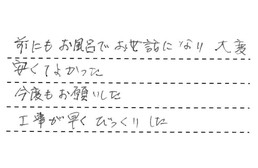 前にもお風呂でお世話になり 大変
安くてよかった
今度もお願いした
工事が早くびっくりした